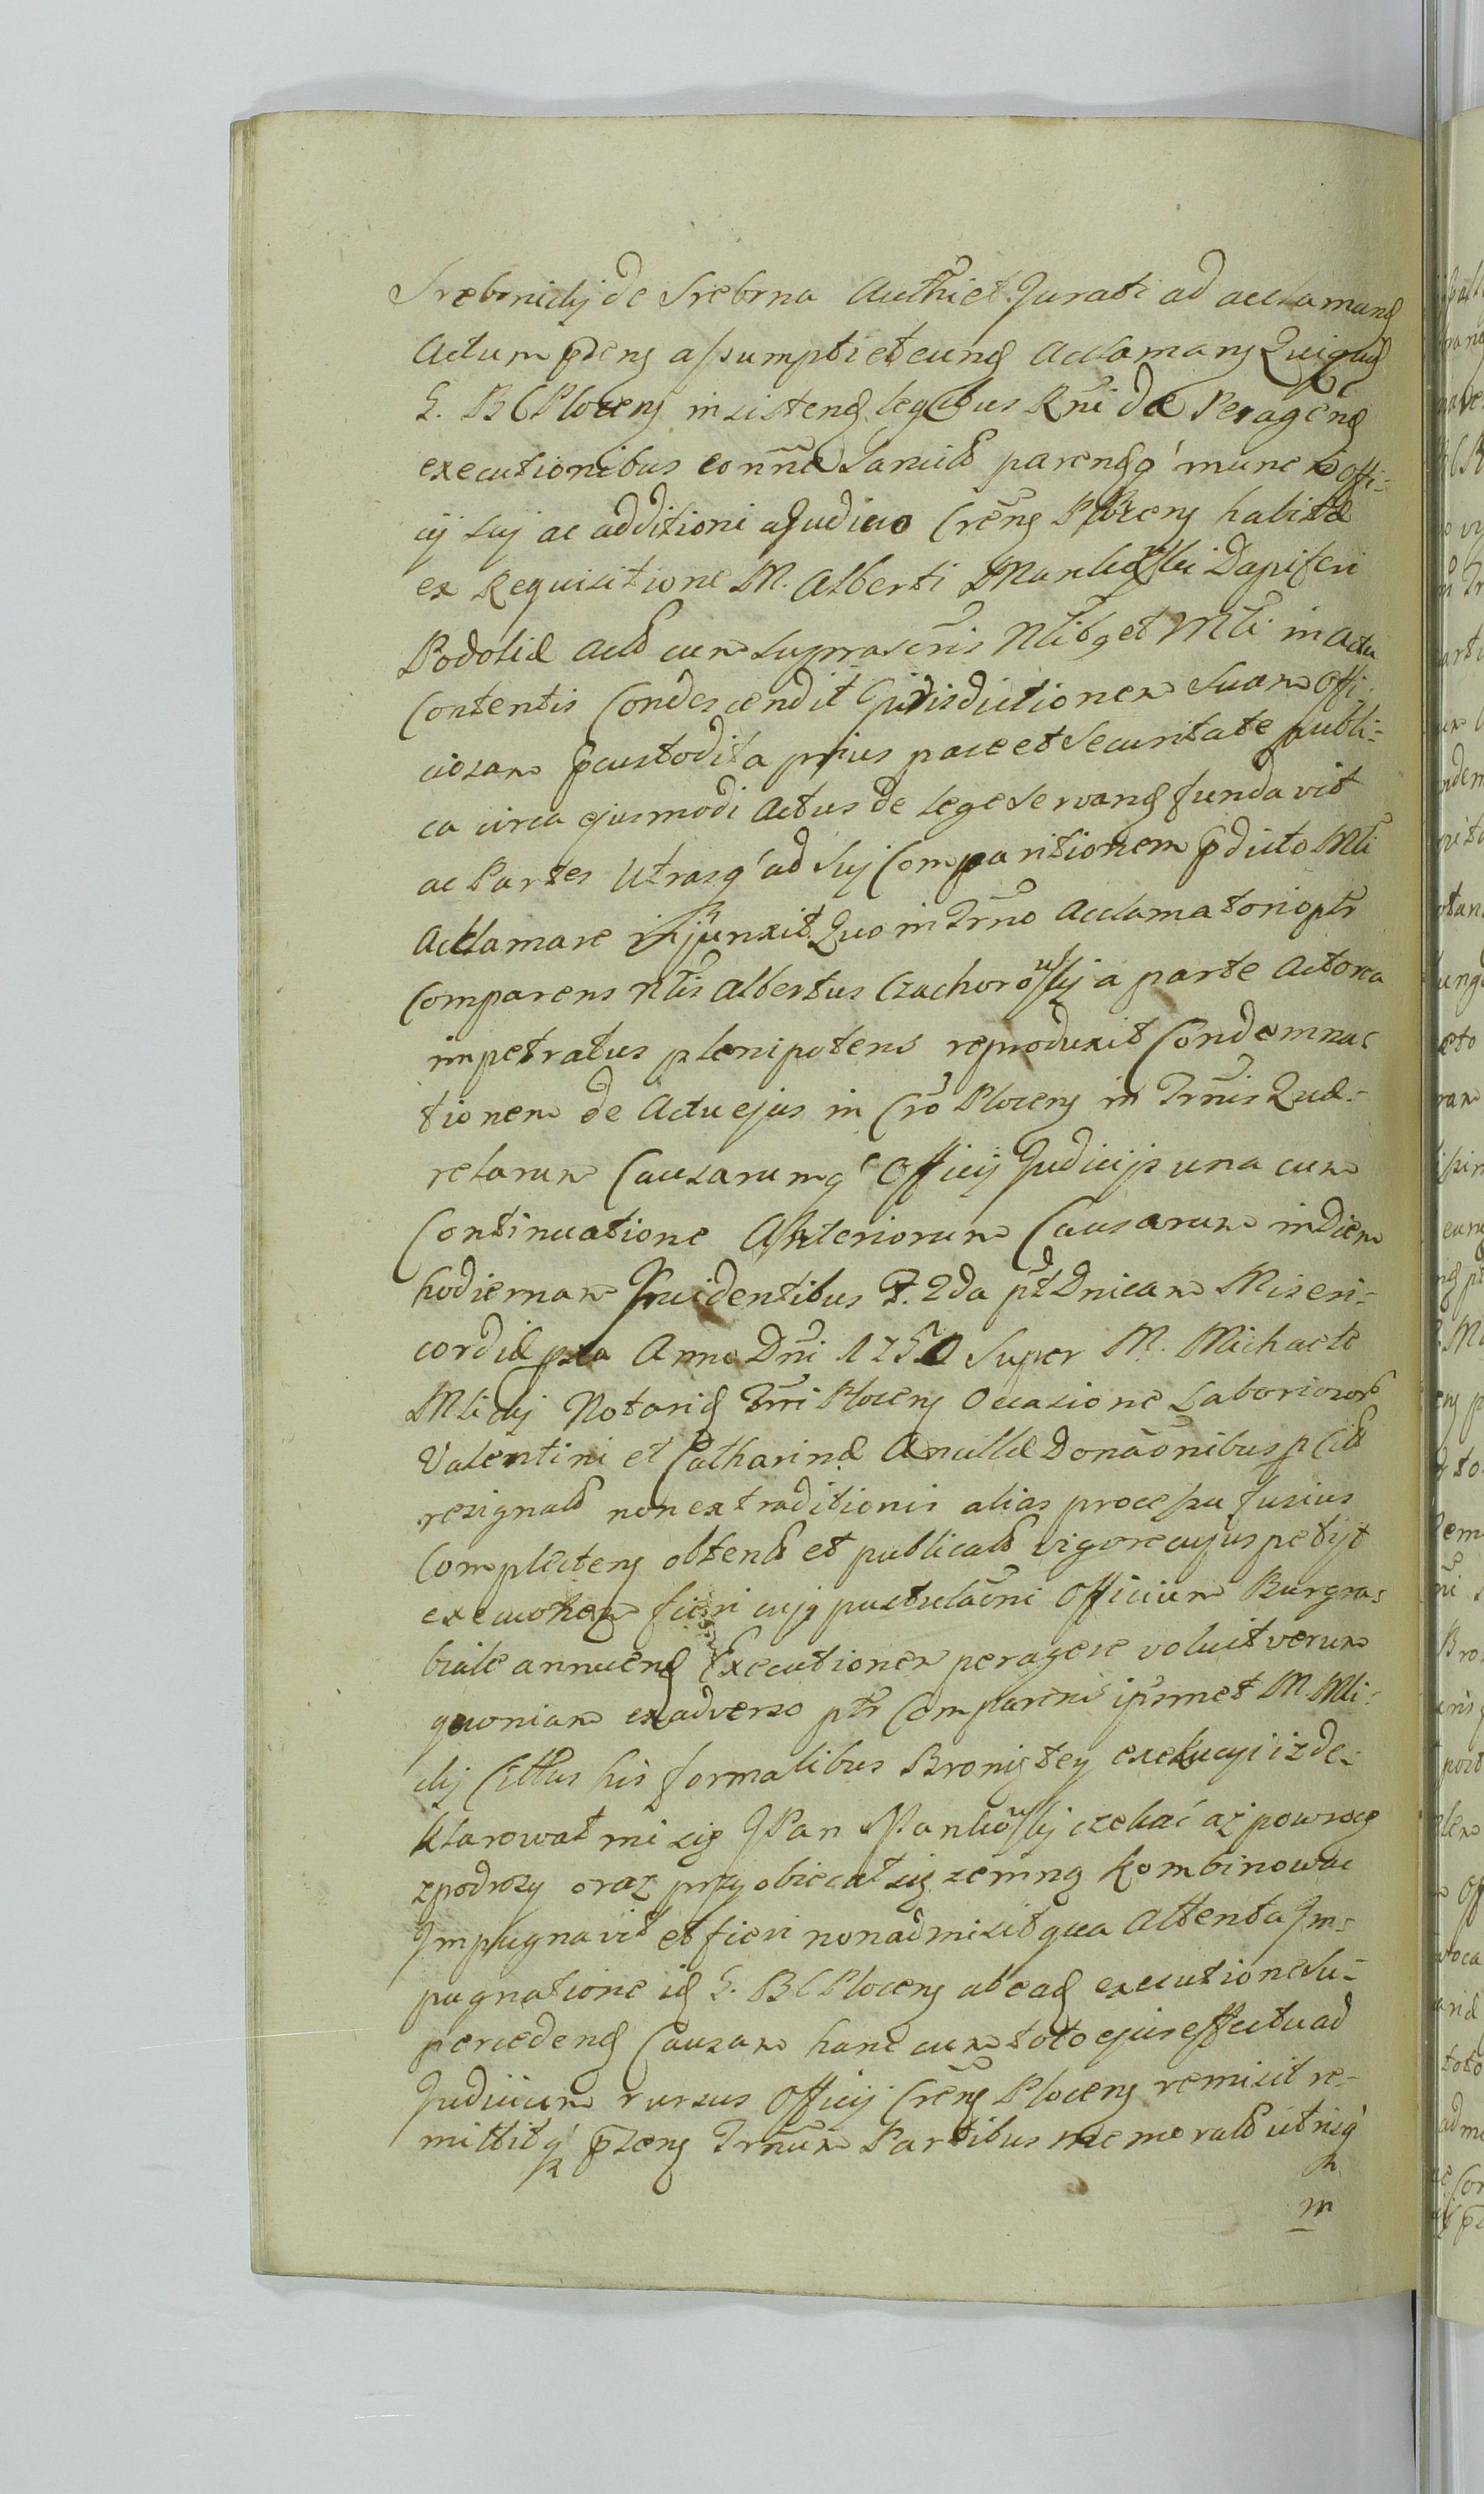 Srebrnickj de Srebrna Authćt Jurati ad acclamang
Actum p̃sens assumpti et eund Acclamans Quiquid
G. B C Plocens insistend legibus Rñi de Peragend
executionibus conñae sancit parendq' muneris offi-
cij suj ac additioni a Judicio Crẽns Plocens habitæ
ex Requisitione M. Alberti Mankowski Dapiferi
Podoliæ act cum suprascris Nlibq et Mli in Actu
Contentis Condescendit Jurisdictionem suam Offi-
ciosam p̃custodita prius pace et securitate publi-
ca circa ejusmodi Actus de lege servand fundavit
ac Partes Utrasq' ad suj Comparitionem p̃dicto Mli
Acclamare injunxit Quo in Trno Acclamatorio ptr
Comparens Nlis Albertus Czachorowskj a parte Actorea
impetratus plenipotens reproduxit Condemna-
tionem de Actu ejus in Cro Plocens in Trnis Quæ-
relarum Causarumq' Officij Judicijs una cum
Continuatione Anteriorum Causarum in diem
hodiernam Incidentibus F. 2da pt Dnicam Miseri-
cordiæ pxa Anno Dñi 1750 Super M. Michaele
Mlickj Notarió Trri Plocens Occasione Laboriosor
Valentini et Catharinæ Anullæ Donaõnibus p Cit
resignat non extraditionis alias processu fusius
Complectens obtent et publicat vigore cujus petijt
execuonem fieri cujq postulaõni Officium Burgra-
biale annuend Executionem peragere voluit verum
quoniam ex adverso ptr Comparens ipsemet M. Mli-
ckj Cittus his formalibus Bronię tey exekucyi iz de-
klarował mi się JPan Mankowskj czekać aż powrócę
zpodrozy oraz przyobiecał się zemną kombinować
Impugnavit et fieri non admisit qua attenta Im-
pugnatione id G. B C Plocens ab ead executione su-
percedend Causam hanc cum toto ejus effectu ad
Judicium rursus Officij Crẽns Plocens remisit re-
mittitq' p̃sens Trnum Partibus memorat utrisq'
p
p
m